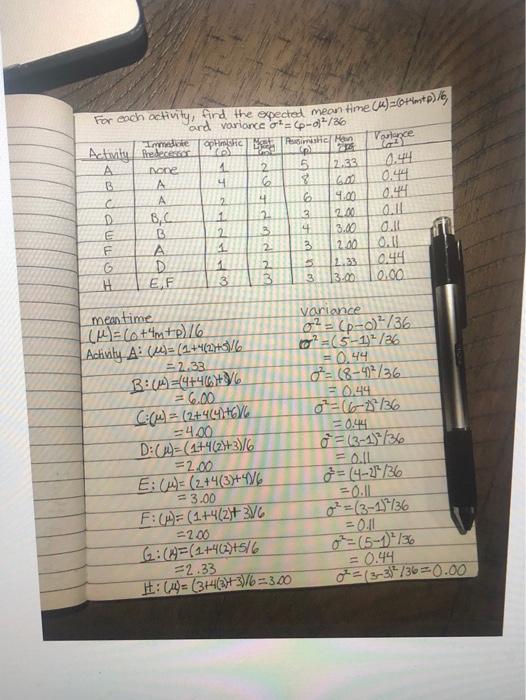 For each activity, find the expected mean time (μ)=(o+4m+p)/6,
and variance σ²=(p-o)²/36
Activity | Immediate Predecessor | optimistic (o) | Most likely (m) | Pessimistic (p) | Mean | Variance (σ²)
A | none | 1 | 2 | 5 | 2.33 | 0.44
B | A | 4 | 6 | 8 | 6.00 | 0.44
C | A | 2 | 4 | 6 | 4.00 | 0.44
D | B,C | 1 | 2 | 3 | 2.00 | 0.11
E | B | 2 | 3 | 4 | 3.00 | 0.11
F | A | 1 | 2 | 3 | 2.00 | 0.11
G | D | 1 | 2 | 5 | 2.33 | 0.44
H | E,F | 3 | 3 | 3 | 3.00 | 0.00
mean time
(μ)=(o+4m+p)/6
Activity A: (μ)=(1+4(2)+5)/6
=2.33
B: (μ)=(4+4(6)+8)/6
= 6.00
C: (μ)= (2+4(4)+6)/6
=4.00
D: (μ)= (1+4(2)+3)/6
=2.00
E: (μ)= (2+4(3)+4)/6
= 3.00
F: (μ)= (1+4(2)+3)/6
=2.00
G: (μ)=(1+4(2)+5/6
=2.33
H: (μ)= (3+4(3)+3)/6=3.00
variance
σ² = (p-o)²/36
σ²=(5-1)²/36
= 0.44
σ²= (8-4)²/36
= 0.44
σ²= (6-2)²/36
= 0.44
σ²= (3-1)²/36
= 0.11
σ²= (4-2)²/36
=0.11
σ²= (3-1)²/36
= 0.11
σ²= (5-1)²/36
= 0.44
σ²= (3-3)²/36=0.00